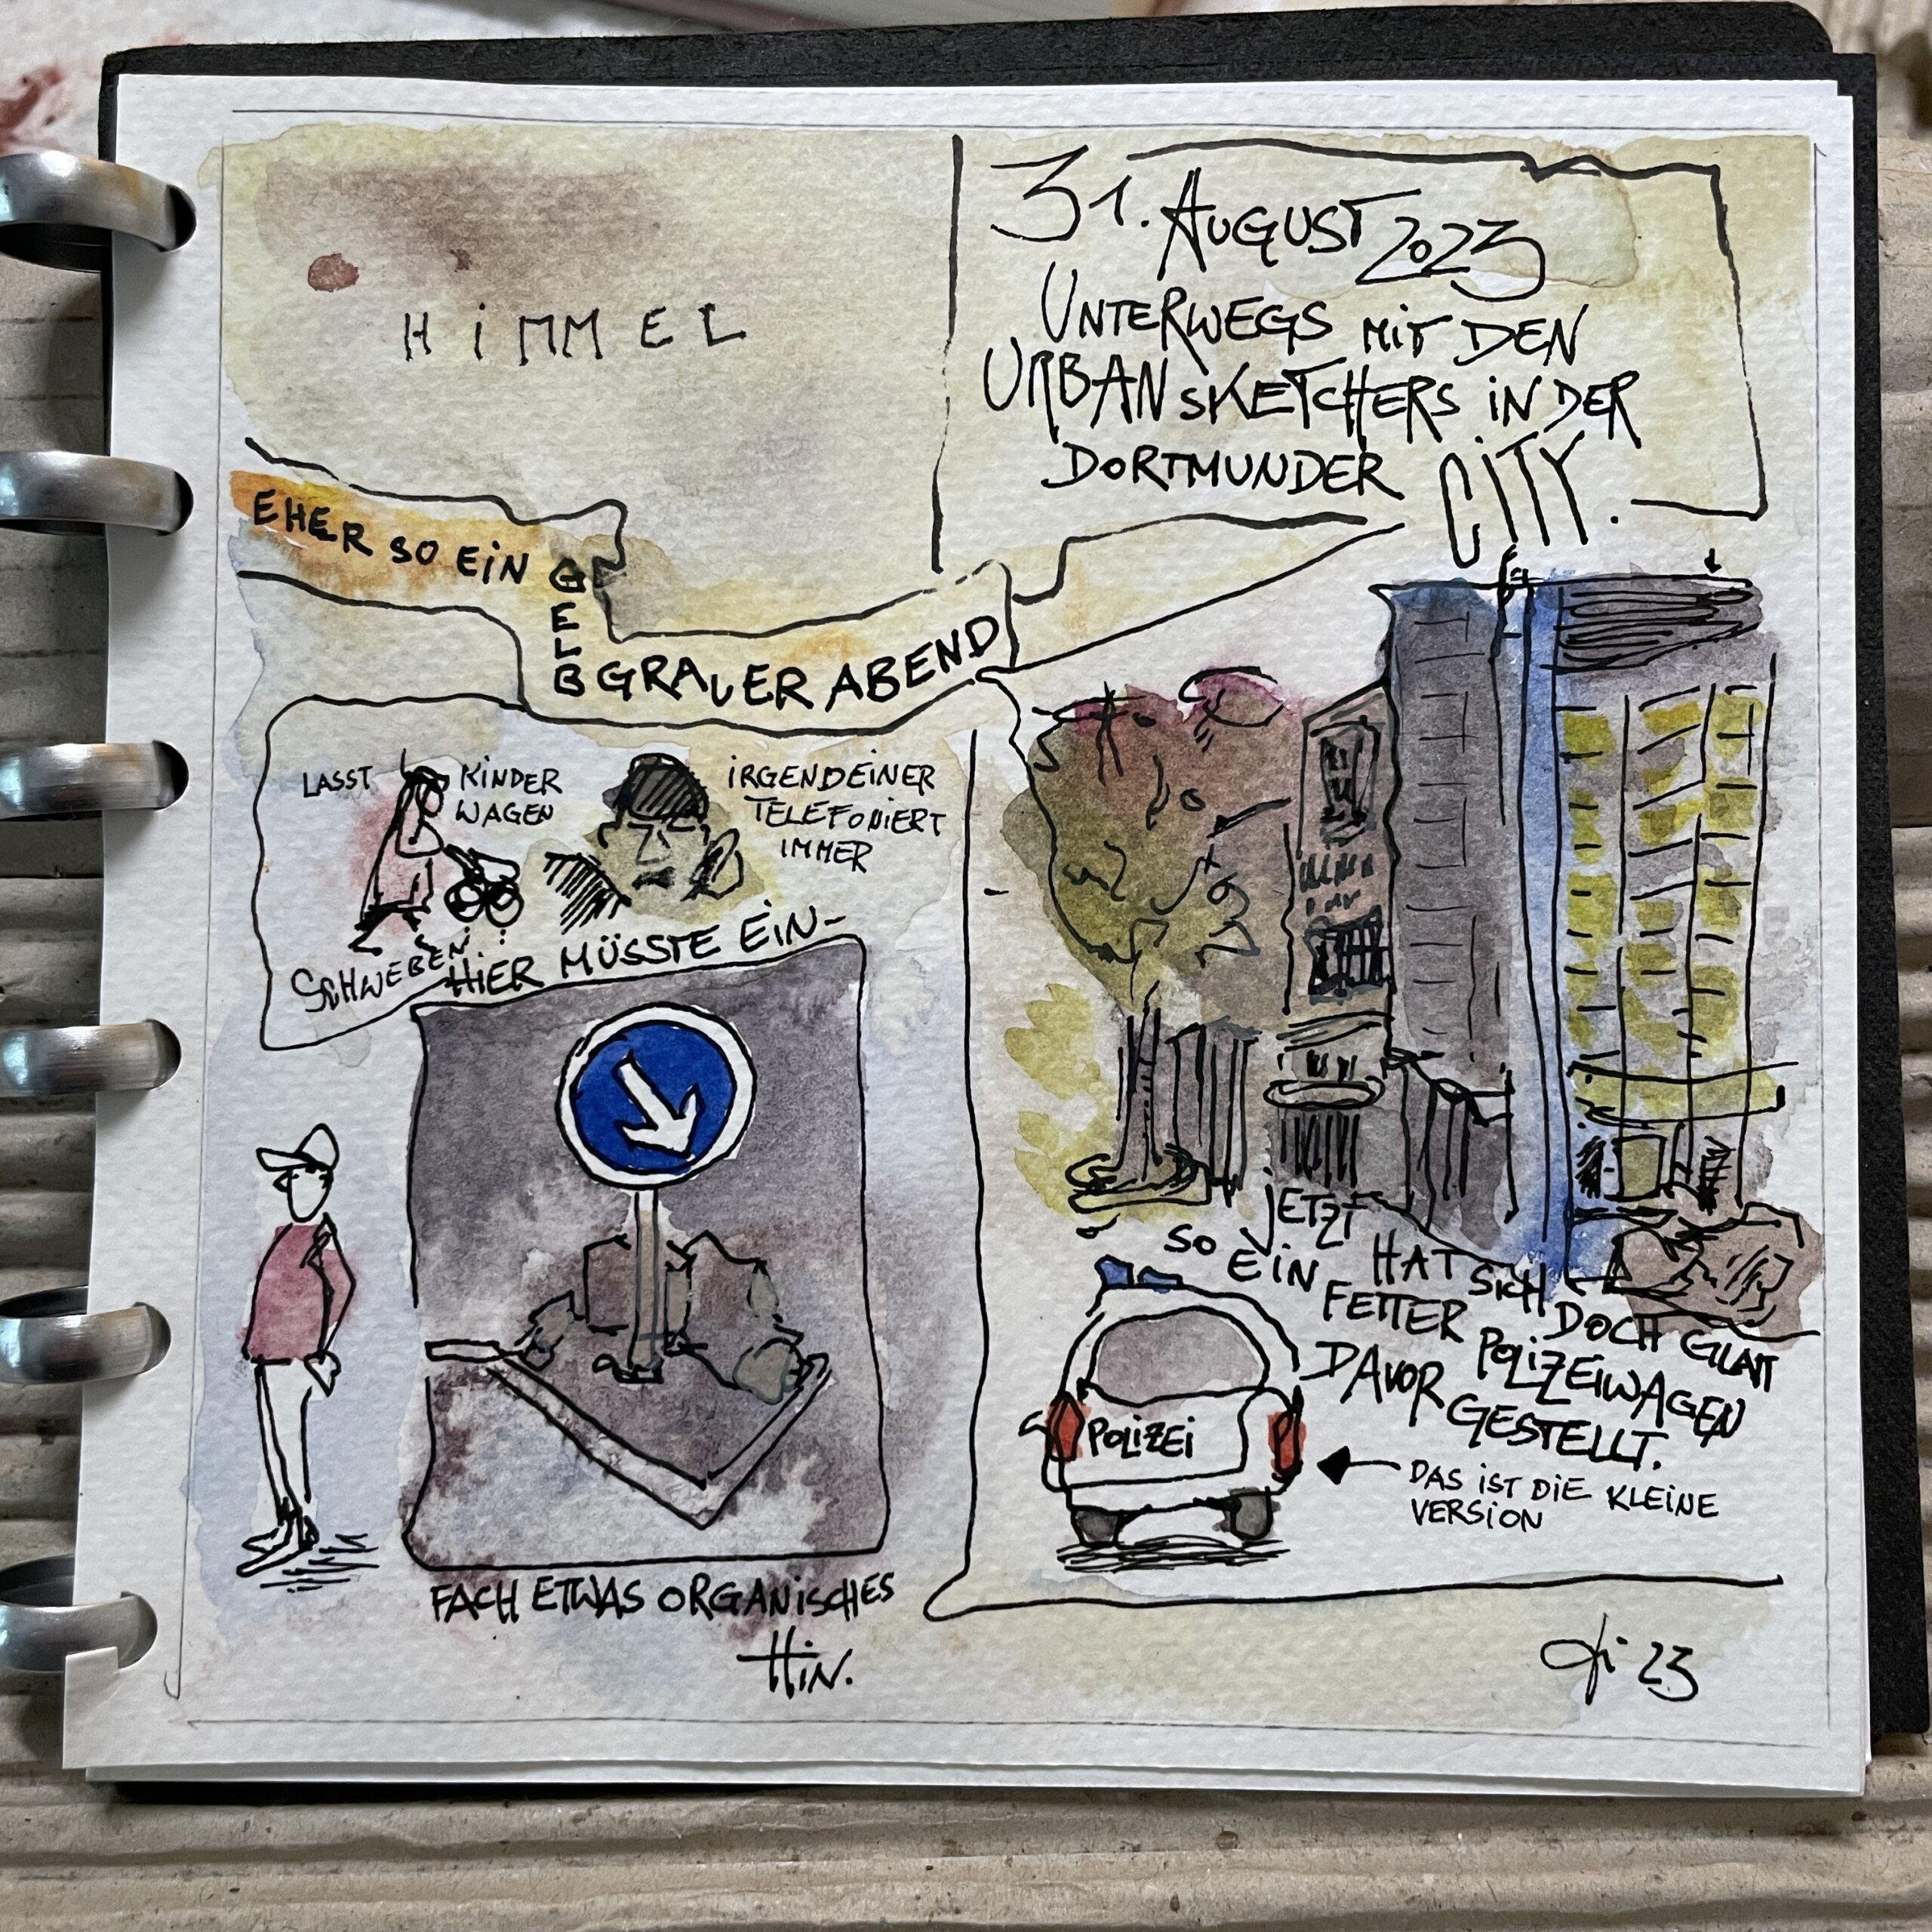 HIMMEL
31. AUGUST 2023
UNTERWEGS MIT DEN
URBAN SKETCHERS IN DER
DORTMUNDER CITY.
EHER SO EIN
GELB
GRAUER ABEND
LASST KINDER
WAGEN
SCHWEBEN
IRGENDEINER
TELEFONIERT
IMMER
HIER MÜSSTE EIN-
FACH ETWAS ORGANISCHES
HIN.
JETZT HAT SICH DOCH GLATT
SO EIN FETTER POLIZEIWAGEN
DAVOR GESTELLT.
POLIZEI
DAS IST DIE KLEINE
VERSION
23